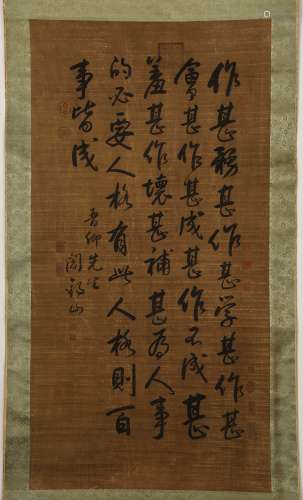 作甚務甚作甚学甚作甚
會甚作甚成甚作不成甚
羞甚作壞甚補甚為人事
的必要人格有此人格則百
事皆成
晋卿先生
閻錫山